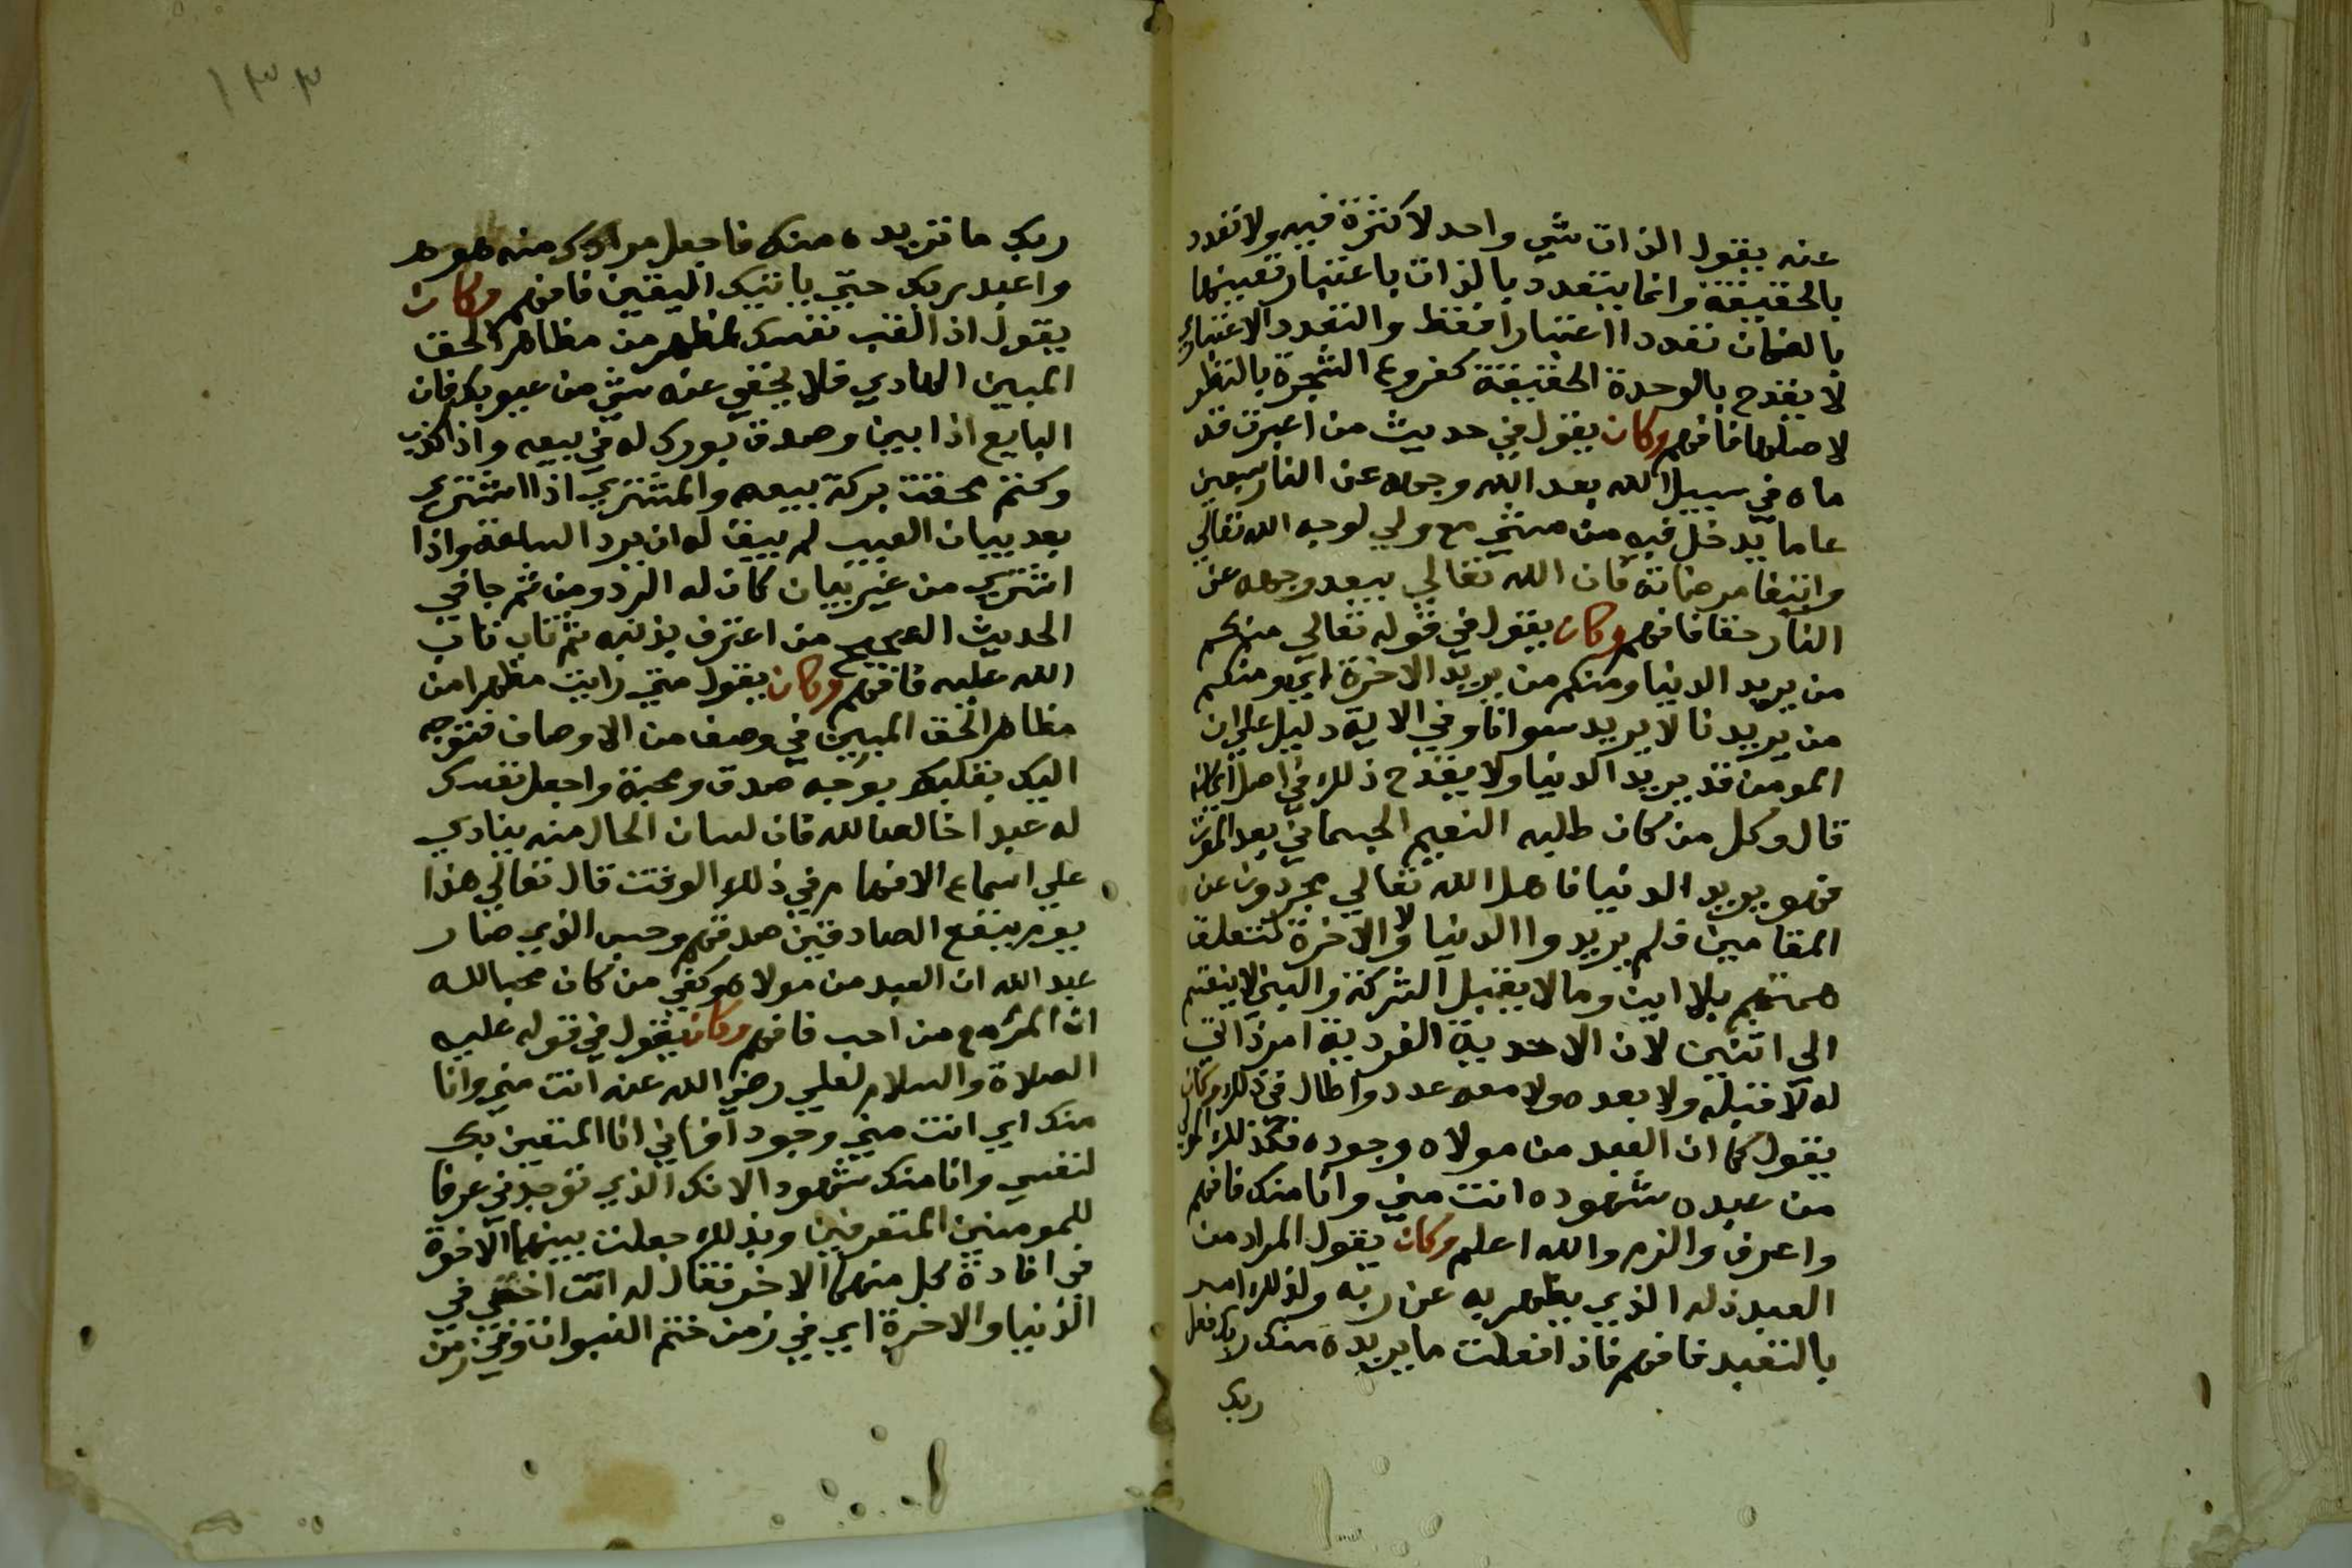 عنه يقول الذات شي واحد لا كثرة فيه ولا تعدد
بالحقيقة وانما يتعدد بالذات باعتبار تعيينها
بالصفات تعددا اعتبارا فقط والتعدد الاعتباري
لا يقدح بالوحدة الحقيقة كفروع الشجرة بالنظر
لاصلها فافهم وكان يقول في حديث من اغبرت قد
ماه في سبيل الله بعد الله وجهه عن النار سبعين
عاما يدخل فيه من مشي مع ولي لوجه الله تعالي
وابتغا مرضاته فان الله تعالي يبعد وجهه عن
النار حقا فافهم وكان يقول في قوله تعالي منكم
من يريد الدنيا ومنكم من يريد الاخرة اي ومنكم
من يريدنا لا يريد سوانا وفي الاية دليل علي ان
المومن قد يريد الدنيا ولا يقدح ذلك في اصل ايمانه
قال وكل من كان طلبه النعيم الجسماني بعد الموت
فهو يريد الدنيا فاهل الله تعالي مجردون عن
المقامين فلم يريدوا الدنيا ولا الاخرة لتعلق
همتهم بلا اين وما لا يقبل الشركة والبين لا ينقسم
الي اثنين لان الاحدية الفردية امر ذاتي
له لا قبله ولا بعده ولا معه عدد واطال في ذلك وكان
يقول كما ان العبد من مولاه وجوده فكذلك المولي
من عبده شهوده انت مني وانا منك فافهم
واعرف والزم والله اعلم وكان يقول المراد من
العبد ذله الذي يظهر به عن ربه ولذلك امر
بالتعبد فافهم فاذا فعلت ما يريده منك ربك فعل
ربك
١٣٣
ربك ما تريده منك فاجعل مرادك منه هو
واعبد ربك حتي ياتيك اليقين فافهم وكان
يقول اذا القت نفسك لمظهر من مظاهر الحق
المبين الهادي فلا يخفي عنه شي من عيوبك فان
البايع اذا بين وصدق بورك له في بيعه واذا كذب
وكتم محقت بركة بيعه والمشتري اذا اشتري
بعد بيان العيب لم يبق له ان يرد السلعة واذا
اشتري من غير بيان كان له الرد ومن ثم جا في
الحديث الصحيح من اعترف بذنبه ثم تاب تاب
الله عليه فافهم وكان يقول متي رايت مظهرا من
مظاهر الحق المبين في وصف من الاوصاف فتوجه
اليك بقلبك بوجه صدق ومحبة واجعل نفسك
له عبدا خالصا لله فان لسان الحال منه ينادي
علي اسماع الافهام في ذلك الوقت قال تعالي هذا
يوم ينفع الصادقين صدقهم وحسب الذي صار
عبد الله ان العبد من مولاه وكفي من كان محبا لله
ان المرء مع من احب فافهم وكان يقول في قوله عليه
الصلاة والسلام لعلي رضي الله عنه انت مني وانا
منك اي انت مني وجود افاني انا المتعين بك
لنفسي وانا منك شهود الانك الذي توجدني عرفا
للمومنين المتعرفين وبذلك جعلت بينهما الاخوة
في افادة كل منهما الاخر فقال له انت اخي في
الدنيا والاخرة اي في زمن ختم النبوات وفي زمن